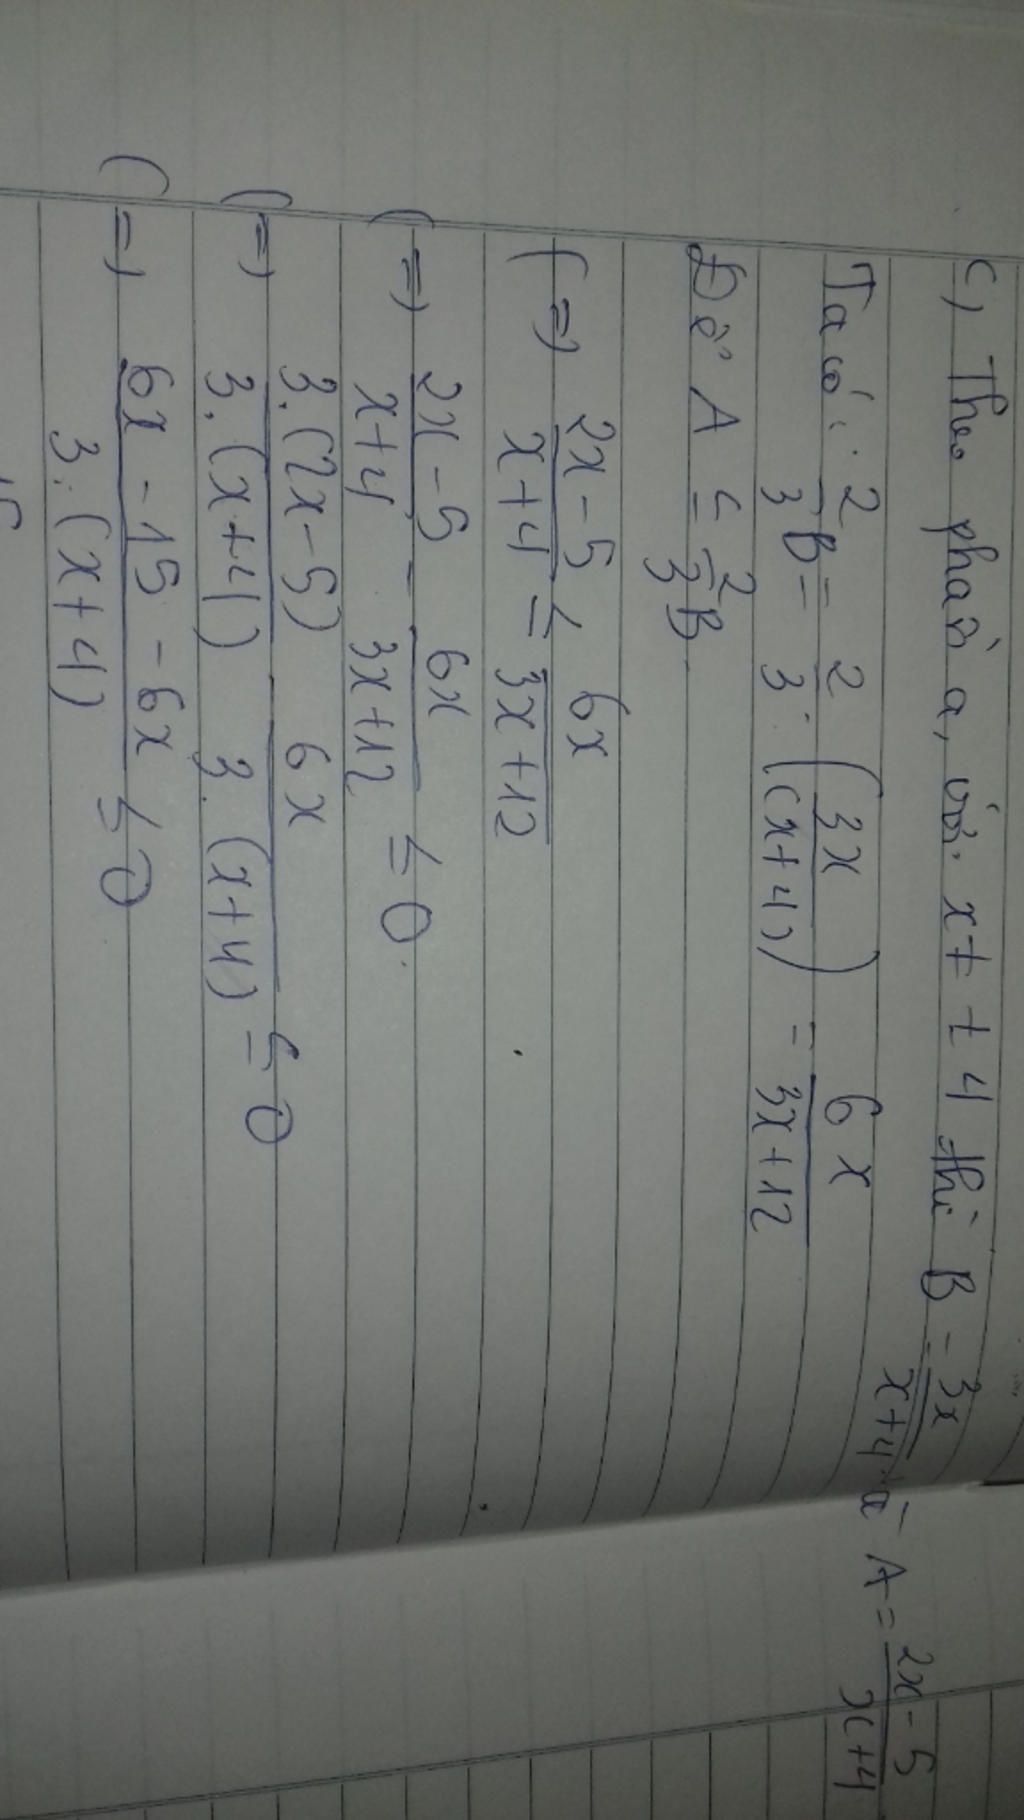 c) Theo phần a, với x ≠ ± 4 thì B = 3x/(x+4) và A = (2x-5)/(x+4)
Ta có: 2/3 B = 2/3 . (3x/(x+4)) = 6x/(3x+12)
Để A ≤ 2/3 B
(=) (2x-5)/(x+4) ≤ 6x/(3x+12)
(=) (2x-5)/(x+4) - 6x/(3x+12) ≤ 0
(=) 3.(2x-5)/3.(x+4) 6x/3.(x+4) ≤ 0
(=) (6x-15-6x)/3.(x+4) ≤ 0